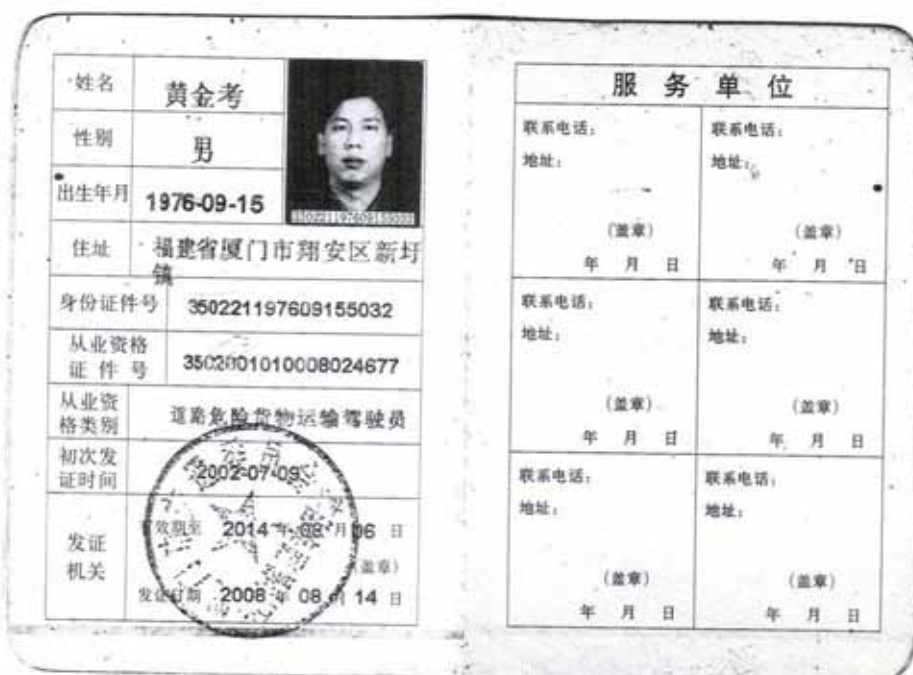 姓名 黄金考
性别 男
出生年月 1976-09-15
350221197609155032
住址 福建省厦门市翔安区新圩
镇
身份证件号 350221197609155032
从业资格
证件号 3502001010008024677
从业资
格类别 道路危险货物运输驾驶员
初次发
证时间 2002-07-09
发证
机关
有效期至 2014 年 08 月 06 日
(盖章)
发证日期 2008 年 08 月 14 日
服务单位
联系电话: 联系电话:
地址: 地址:
(盖章) (盖章)
年 月 日 年 月 日
联系电话: 联系电话:
地址: 地址:
(盖章) (盖章)
年 月 日 年 月 日
联系电话: 联系电话:
地址: 地址:
(盖章) (盖章)
年 月 日 年 月 日